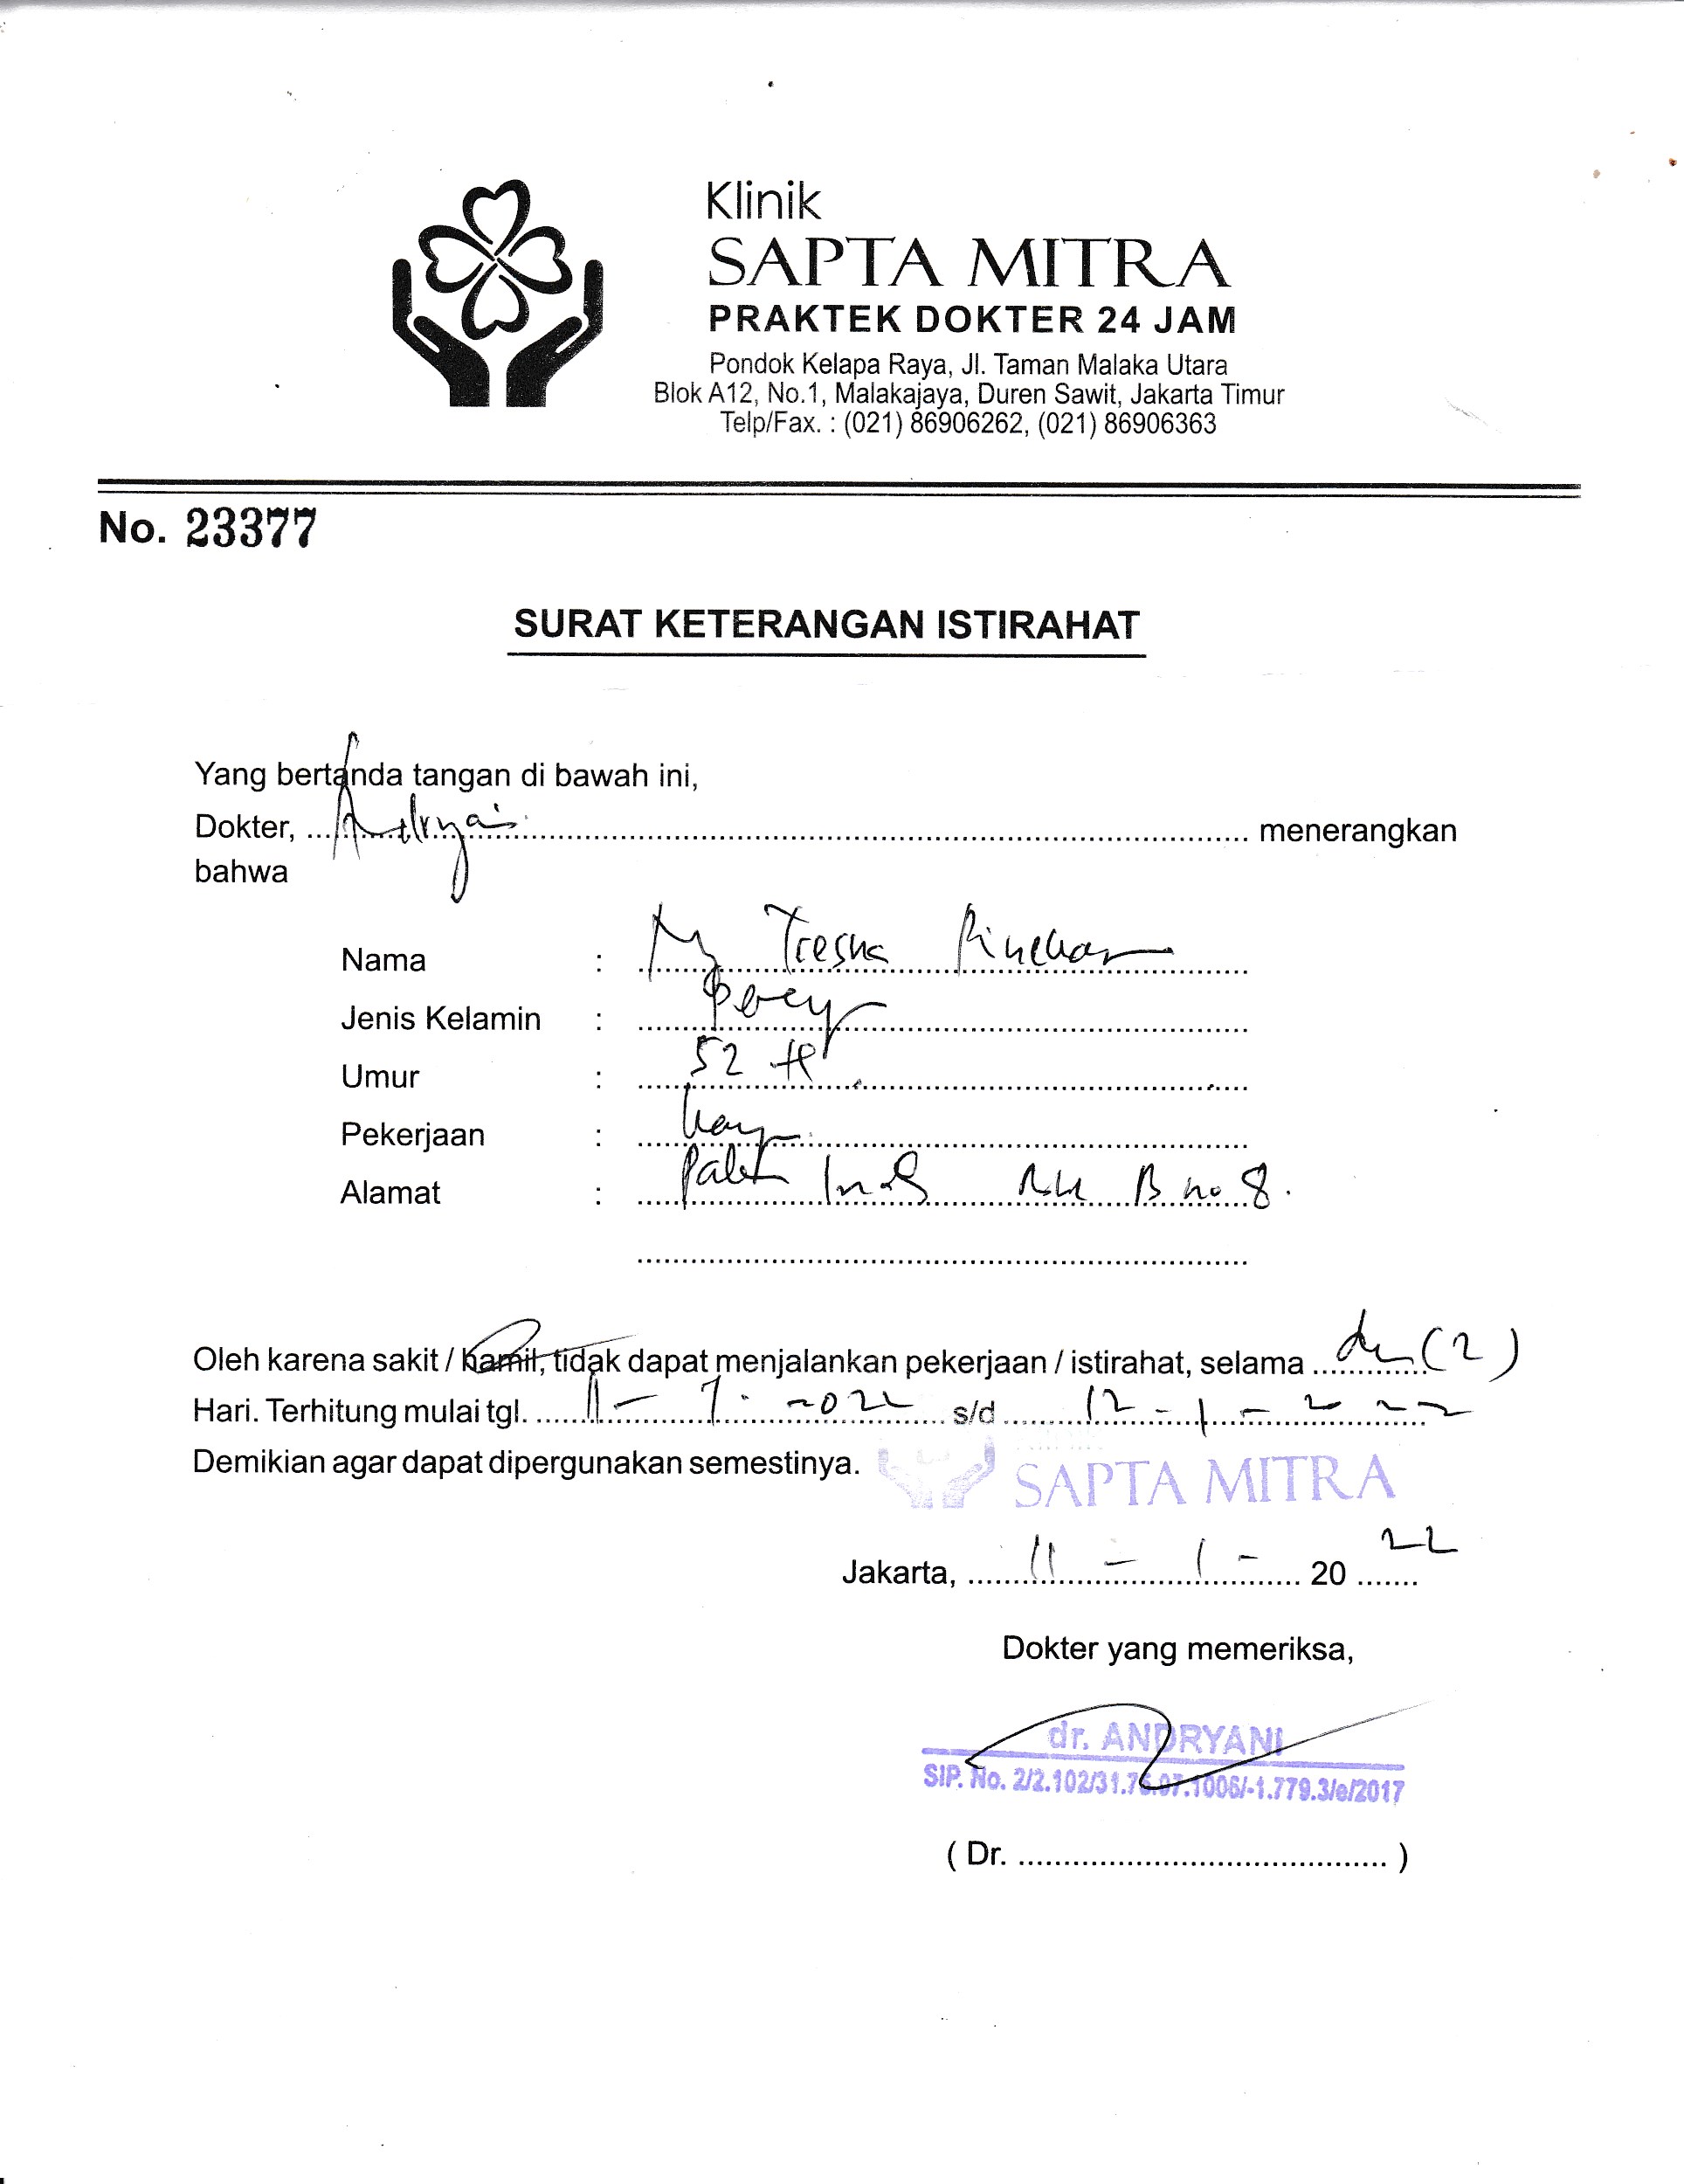 Klinik
SAPTA MITRA
PRAKTEK DOKTER 24 JAM
Pondok Kelapa Raya, Jl. Taman Malaka Utara
Blok A12, No.1, Malakajaya, Duren Sawit, Jakarta Timur
Telp/Fax. : (021) 86906262, (021) 86906363
No. 23377
SURAT KETERANGAN ISTIRAHAT
Yang bertanda tangan di bawah ini,
Dokter, menerangkan
bahwa
Nama : Tresna
Jenis Kelamin :
Umur : 52
Pekerjaan :
Alamat : B no 8.
Oleh karena sakit / hamil, tidak dapat menjalankan pekerjaan / istirahat, selama (2)
Hari. Terhitung mulai tgl. 11 - 1 - 2022 s/d 12 - 1 - 2022
Demikian agar dapat dipergunakan semestinya.
SAPTA MITRA
Jakarta, 11 - 1 - 20 22
Dokter yang memeriksa,
dr. ANDRYANI
SIP. No. 2/2.102/31.75.07.1006/-1.779.3/e/2017
( Dr. )